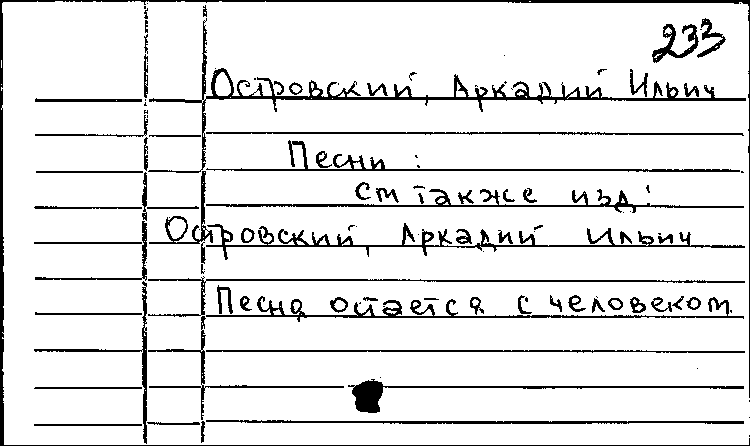 233
Островский, Аркадий Ильич
Песни :
см также изд:
Островский, Аркадий Ильич
Песня остается с человеком